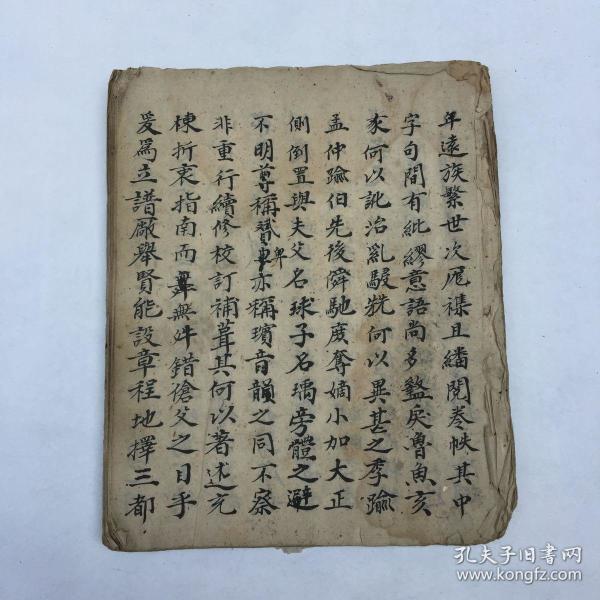 年遠族繁世次厖襍且繙閱卷帙其中
字句間有紕繆意語尚多盭戾魯魚亥
豕何以訛治亂駸駸何以異甚之季踰
孟仲踰伯先後舜馳庶奪嫡小加大正
側倒置與夫父名球子名瑀旁體之避
不明尊稱贊卑亦稱璸音韻之同不察
非重行續修校訂補葺其何以著述充
棟折衷指南而無舛錯傖父之日乎
爰為立譜厰舉賢能設章程地擇三都
孔夫子旧書网
www.kongfz.com